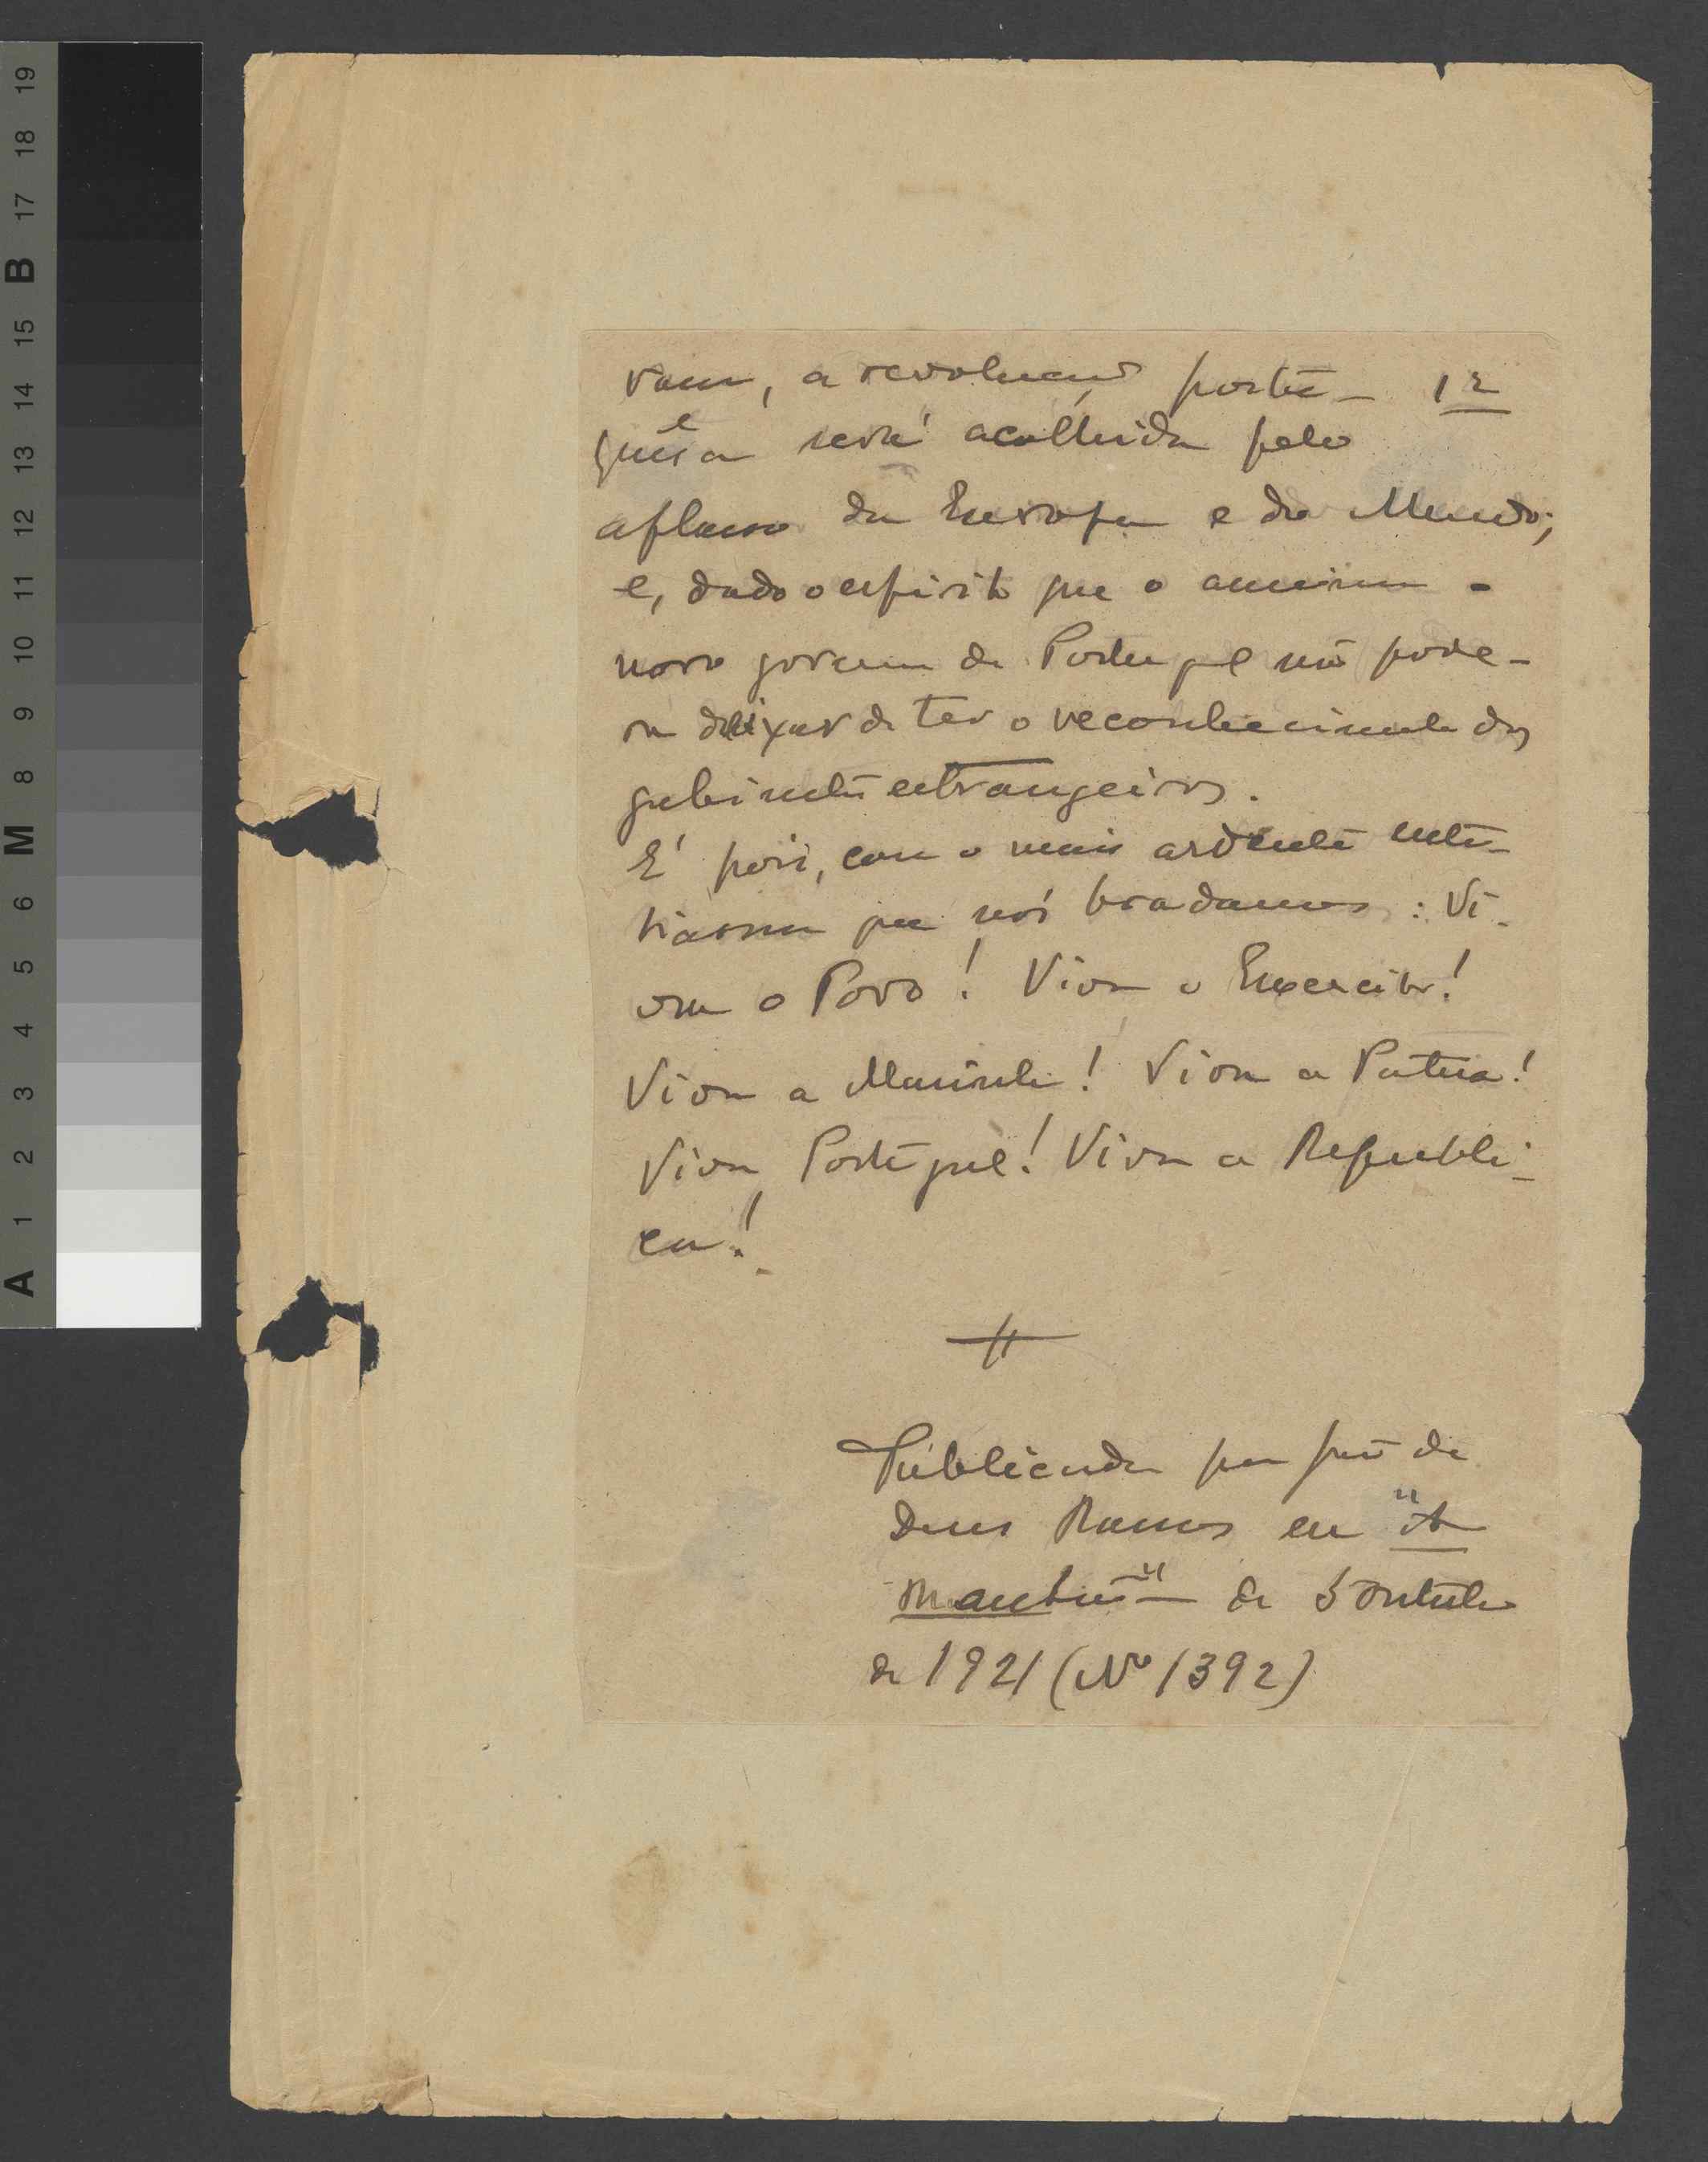 vam, a revolução portu- 12
guêsa será acolhida pelo
aplauso da Europa e do Mundo;
e, dado o espirito que o anima o
novo governo de Portugal não pode-
rá deixar de ter o reconhecimento dos
gabinetes estrangeiros.
E' pois, com o mais ardente entu-
siasmo que nós bradamos: Vi-
va o Povo! Viva o Exercito!
Viva a Marinha! Viva a Patria!
Viva Portugal! Viva a Republi-
ca!
Publicada por João de
Deus Ramos em "A
Manhã" de 5 Outubro
de 1921 (Nº 1392)
A 1 2 3 4 5 6 M 8 9 10 11 12 13 14 15 B 17 18 19